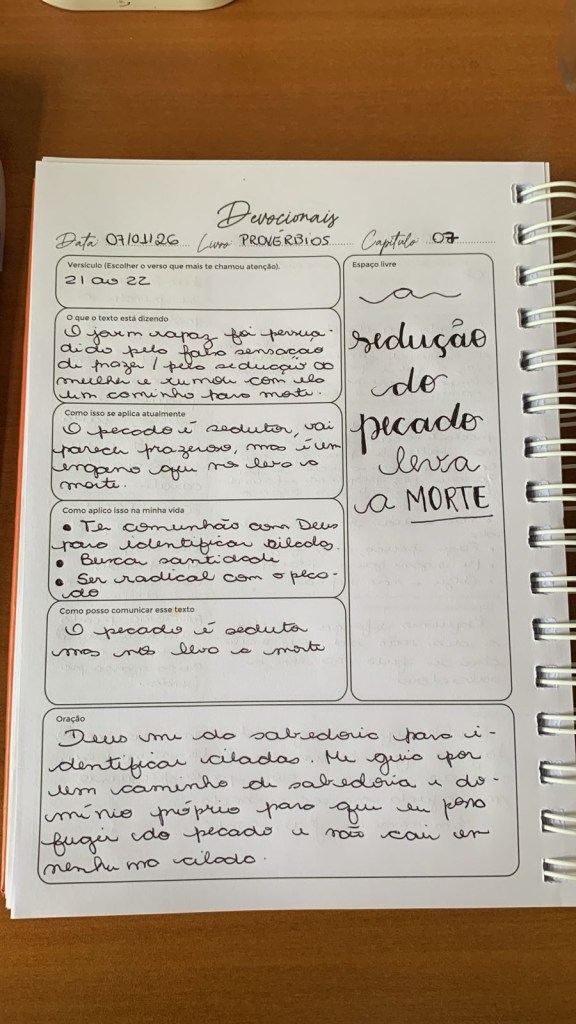 Devocionais
Data 07/01/26 Livro PROVÉRBIOS Capítulo 07
Versículo (Escolher o verso que mais te chamou atenção).
21 ao 22
O que o texto está dizendo
O jovem rapaz foi persua-
dido pela falsa sensação
de prazer / pela sedução da
mulher e rumou com ela
um caminho para morte.
Como isso se aplica atualmente
O pecado é sedutor, vai
parecer prazeroso, mas é um
engano que nos leva a
morte.
Como aplico isso na minha vida
• Ter comunhão com Deus
para identificar ciladas.
• Buscar santidade
• Ser radical com o peca-
do
Como posso comunicar esse texto
O pecado é sedutor
mas nos leva a morte
Espaço livre
a
sedução
do
pecado
leva
a MORTE
Oração
Deus me da sabedoria para i-
dentificar ciladas. Me guia por
um caminho de sabedoria e do-
mínio próprio para que eu possa
fugir do pecado e não cair em
nenhuma cilada.